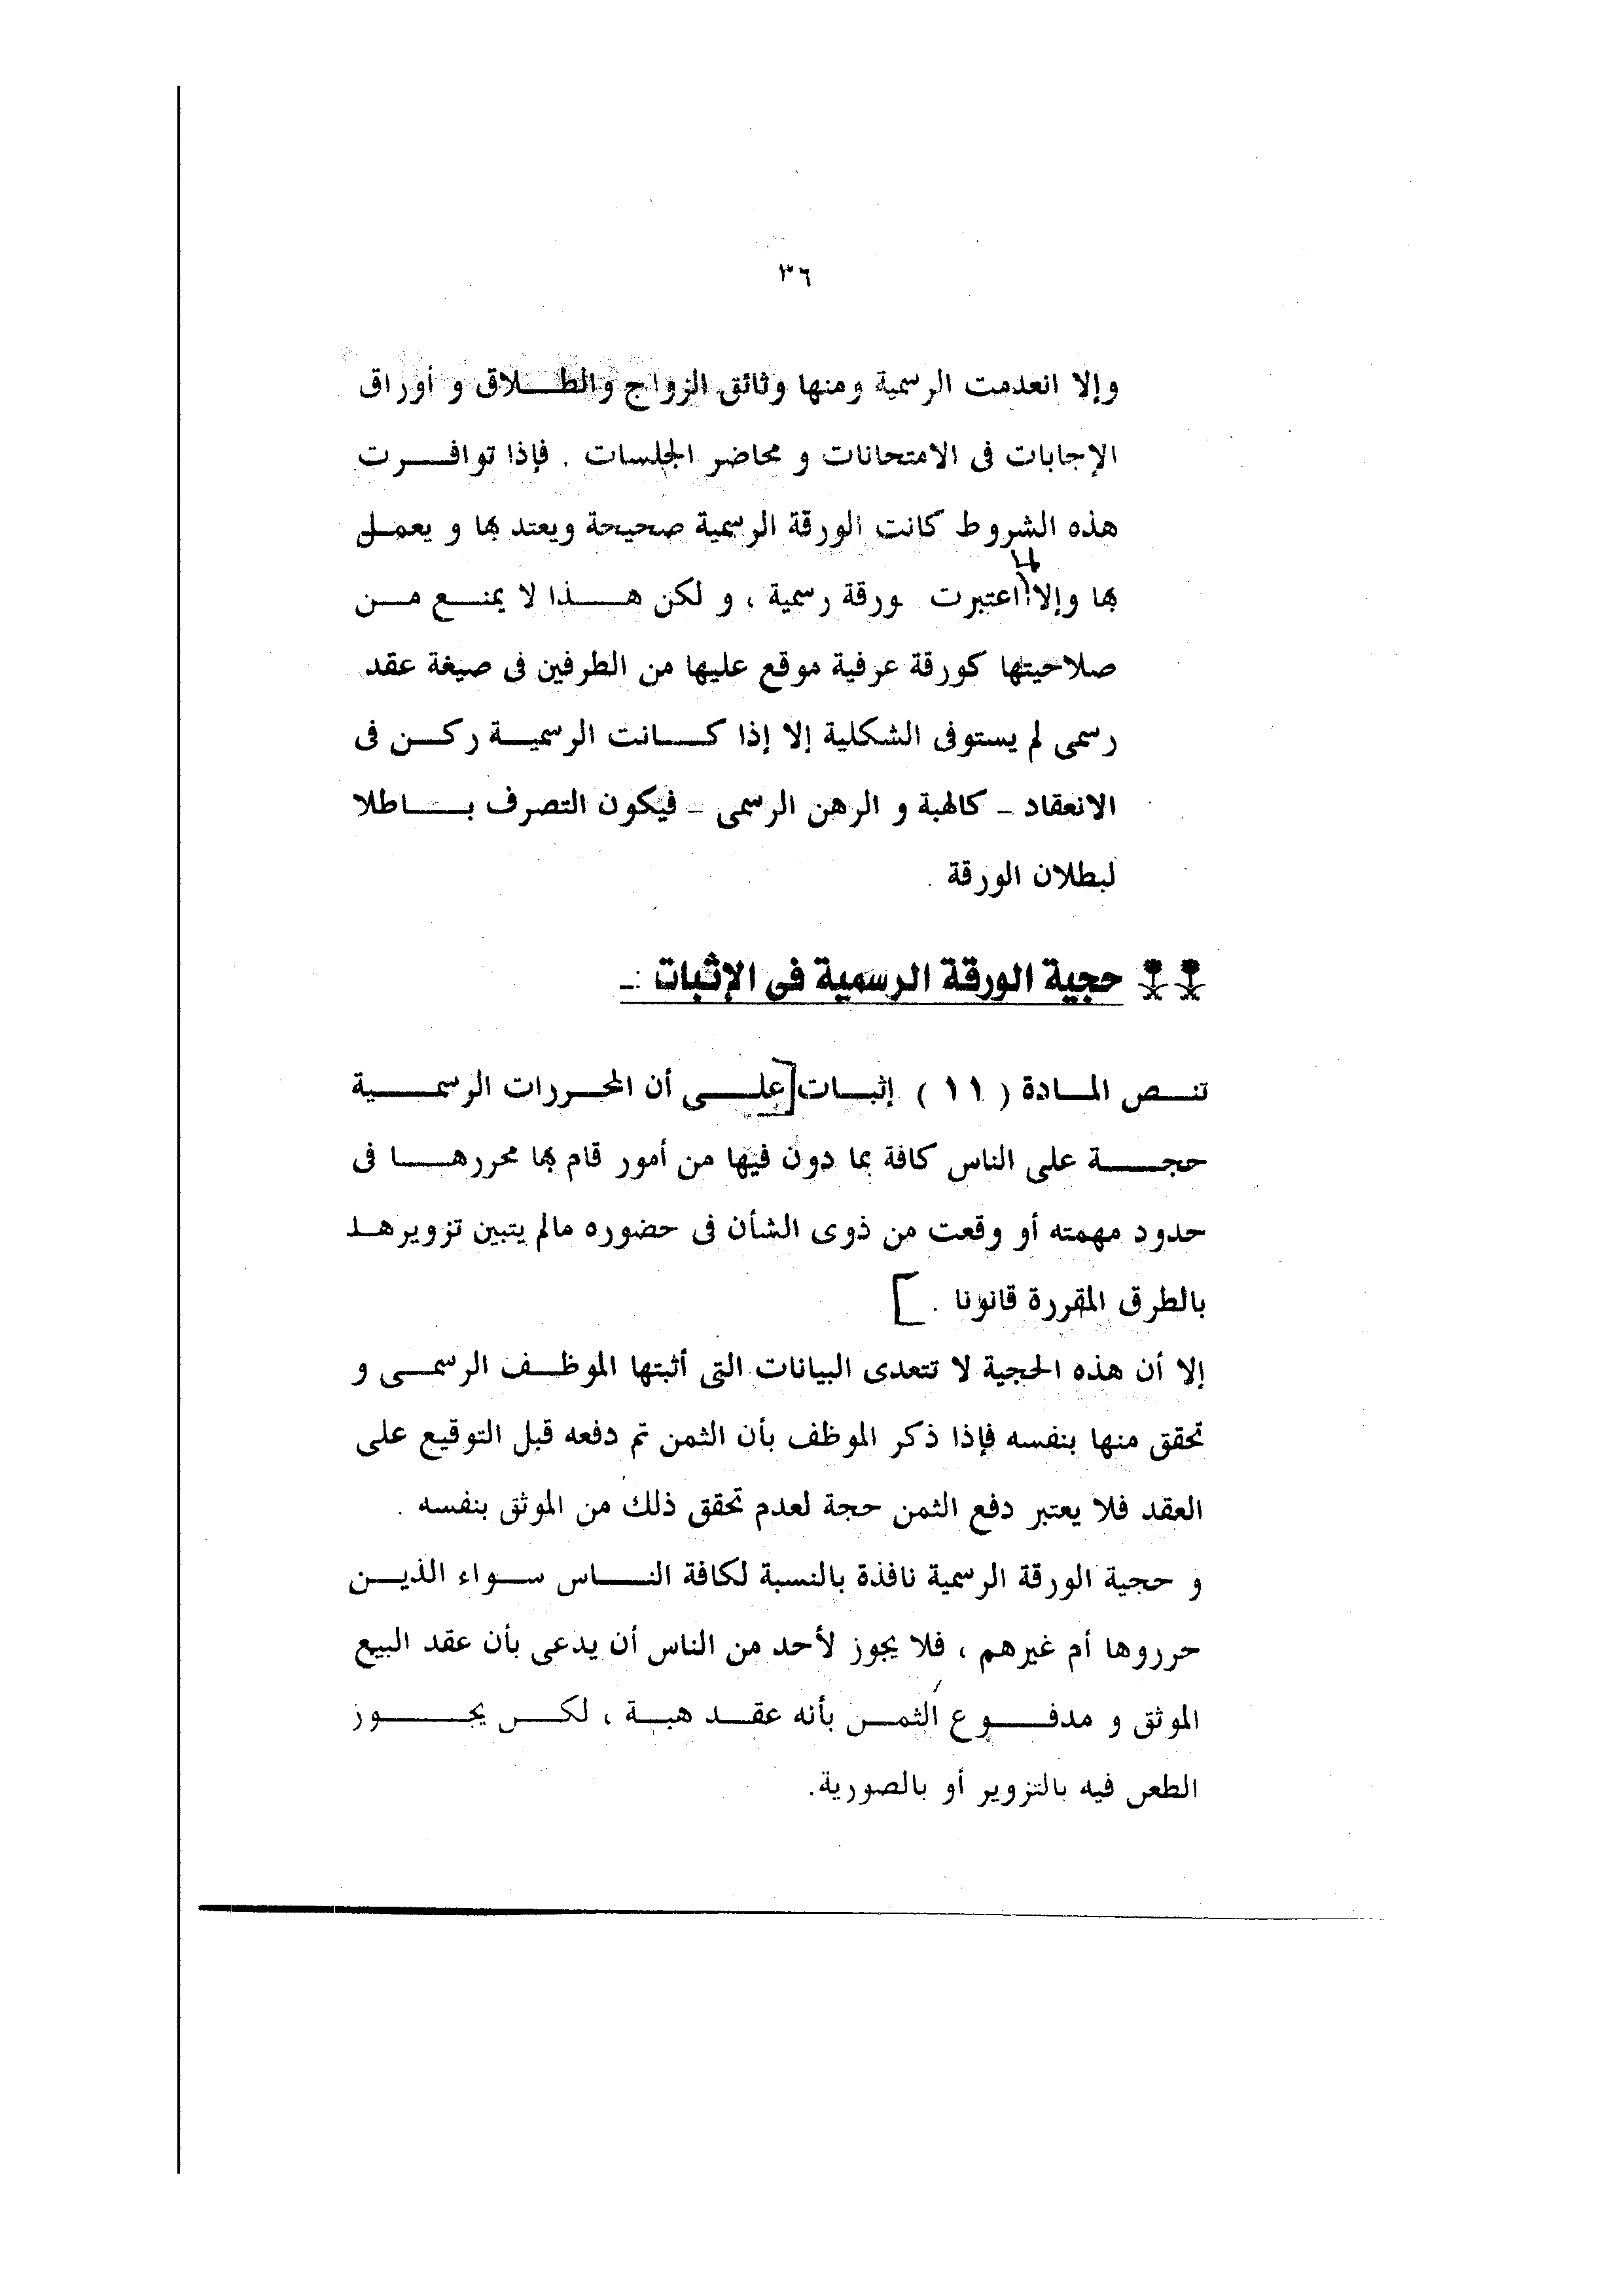 ٣٦
وإلا انعدمت الرسمية ومنها وثائق الزواج والطلاق و أوراق
الإجابات فى الامتحانات و محاضر الجلسات . فإذا توافرت
هذه الشروط كانت الورقة الرسمية صحيحة ويعتد بها و يعمل
بها وإلا اعتبرت ورقة رسمية ، و لكن هذا لا يمنع من
صلاحيتها كورقة عرفية موقع عليها من الطرفين فى صيغة عقد
رسمى لم يستوفى الشكلية إلا إذا كانت الرسمية ركن فى
الانعقاد – كالهبة و الرهن الرسمى – فيكون التصرف باطلا
لبطلان الورقة .
حجية الورقة الرسمية فى الإثبات :ـ
تنص المادة ( ١١ ) إثبات [على أن المحررات الرسمية
حجة على الناس كافة بما دون فيها من أمور قام بها محررها فى
حدود مهمته أو وقعت من ذوى الشأن فى حضوره مالم يتبين تزويرهـ
بالطرق المقررة قانونا . ]
إلا أن هذه الحجية لا تتعدى البيانات التى أثبتها الموظف الرسمى و
تحقق منها بنفسه فإذا ذكر الموظف بأن الثمن تم دفعه قبل التوقيع على
العقد فلا يعتبر دفع الثمن حجة لعدم تحقق ذلك من الموثق بنفسه .
و حجية الورقة الرسمية نافذة بالنسبة لكافة الناس سواء الذين
حرروها أم غيرهم ، فلا يجوز لأحد من الناس أن يدعى بأن عقد البيع
الموثق و مدفوع الثمن بأنه عقد هبة ، لكن يجوز
الطعن فيه بالتزوير أو بالصورية.